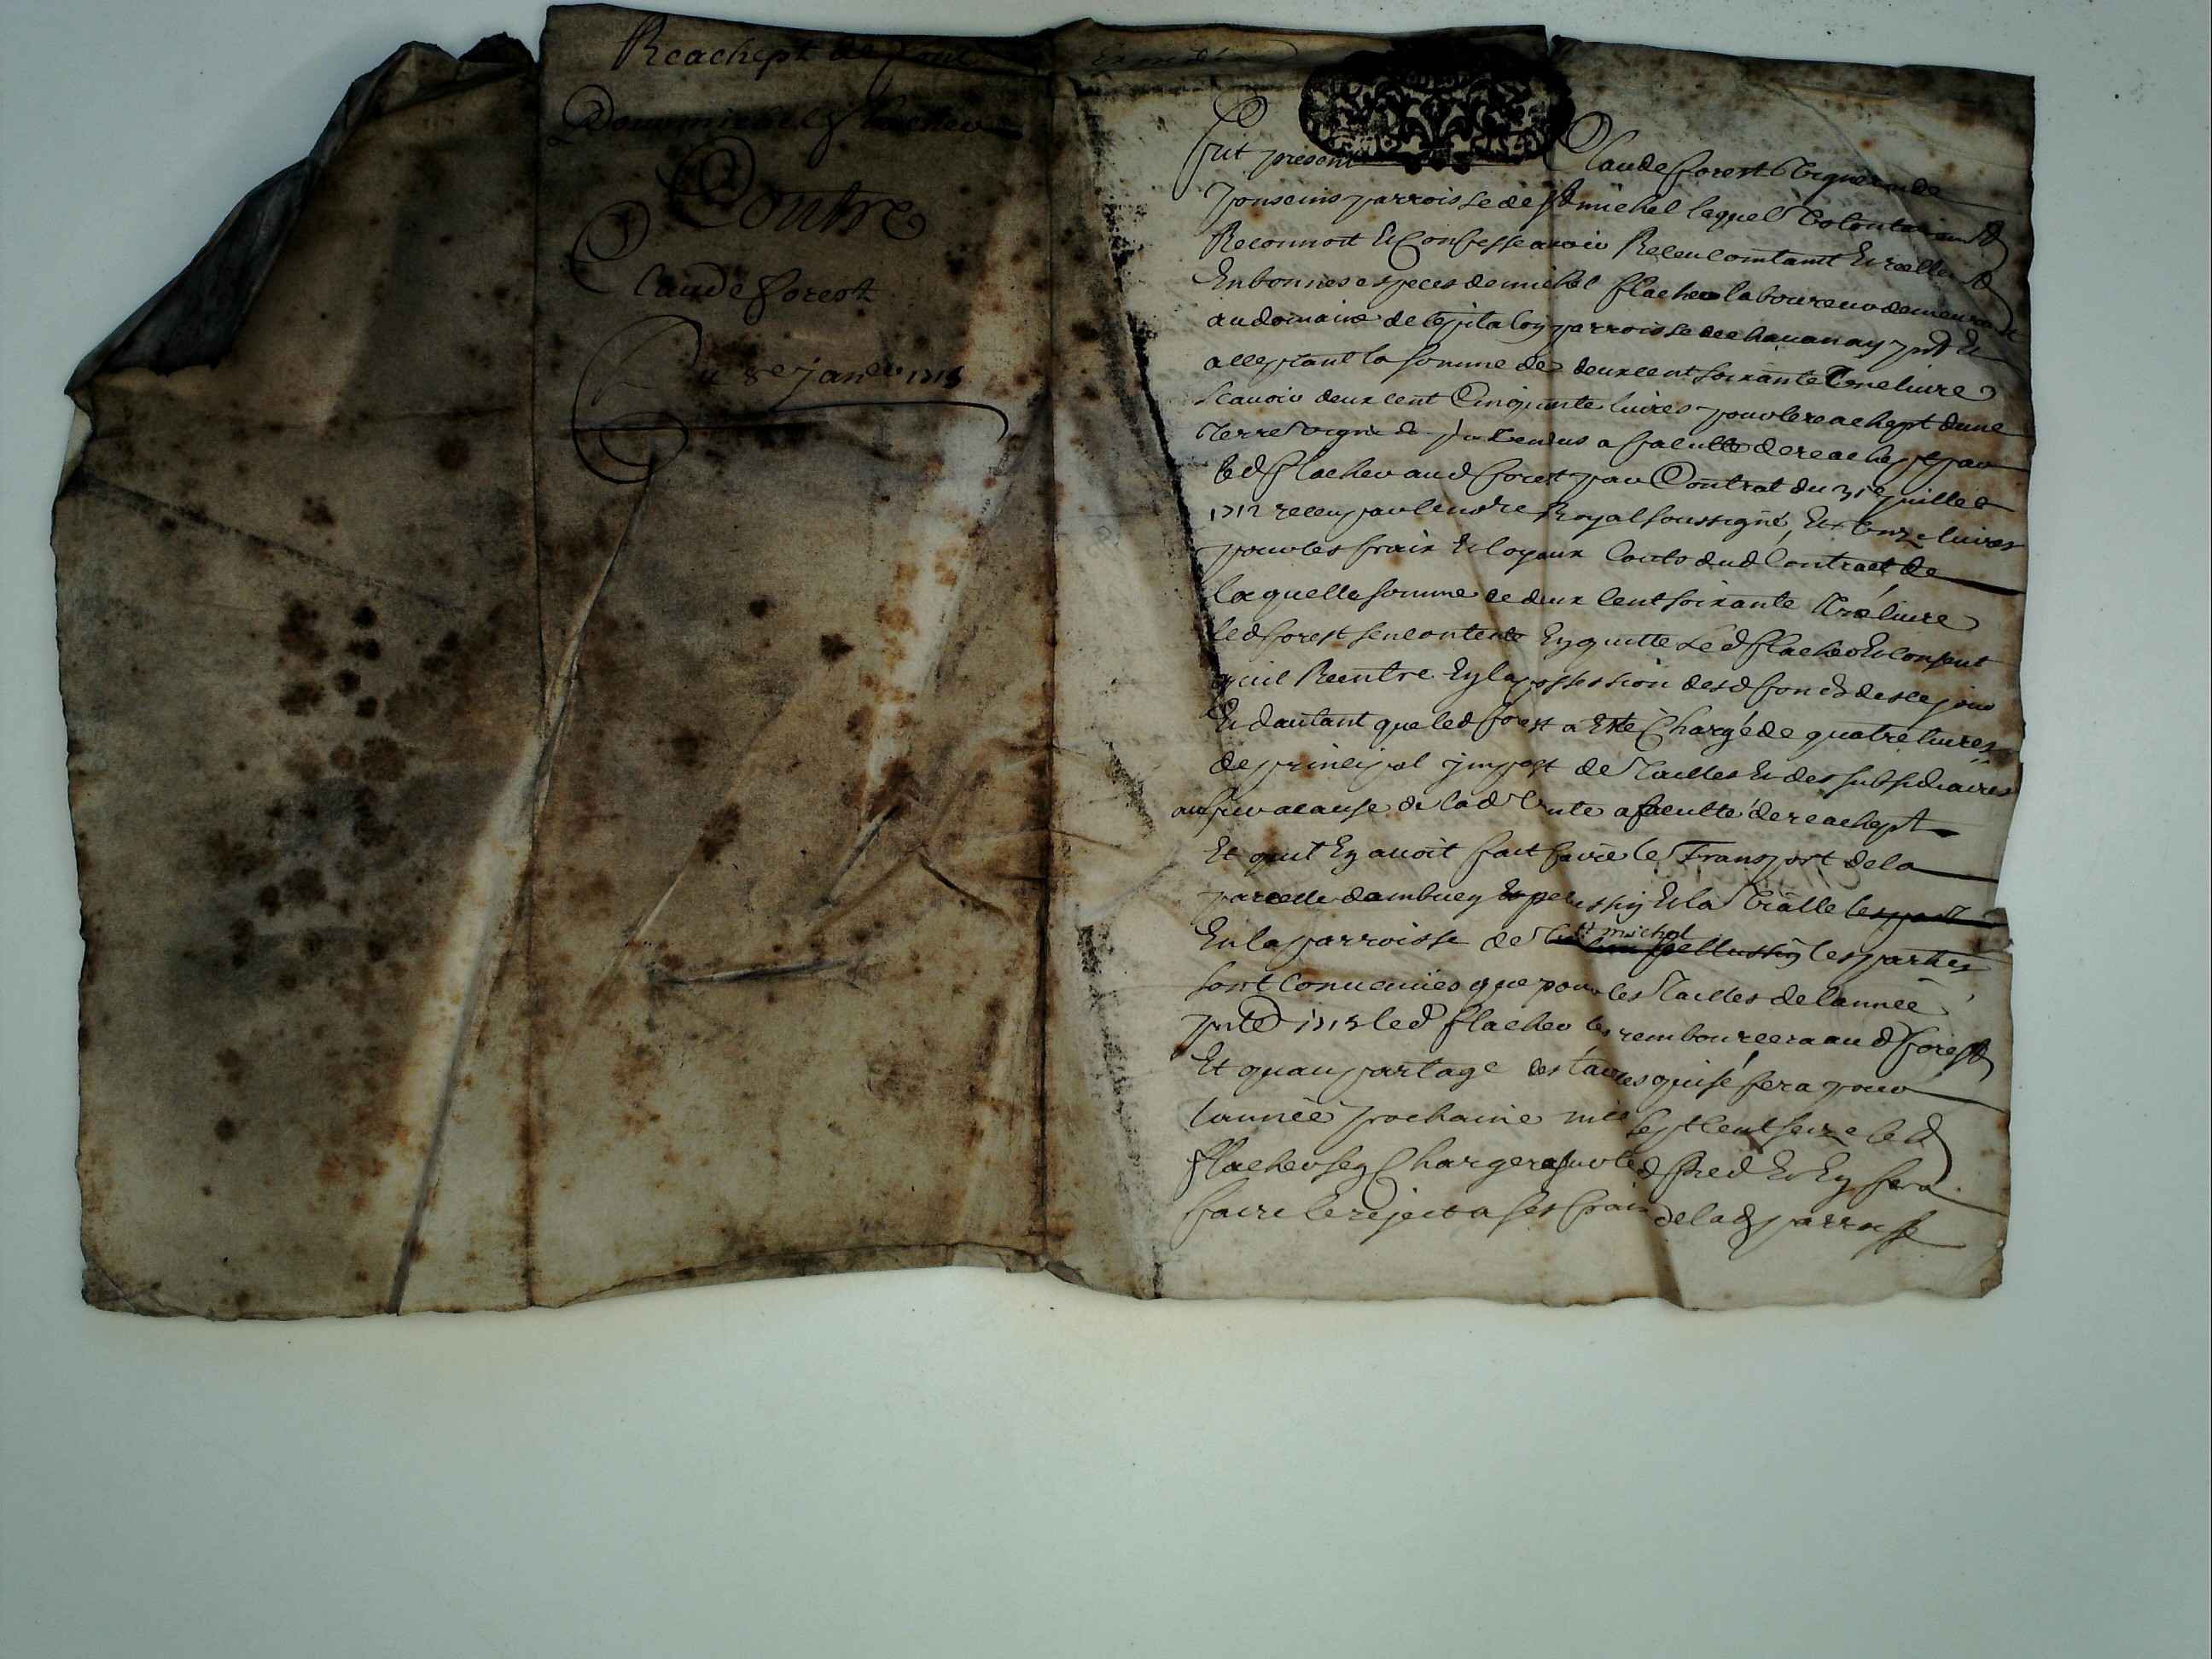 Reachept de fond
Contre
Claude forest
Du 8e janer 1715
fut present Claude forest Vigneron de
Ponseins parroisse de St michel lequel Volontairemt
Reconnoit Et Confesse avoir Receu comtamt Et reellemt
En bonnes especes de michel flacher laboureur demeurant
au domaine de parroisse de chauanay pnt Et
acceptant la somme de deux cent soixante Une liure
scauoir deux cent Cinquante liures pour le reachept dune
Terre Vigne & Vendus a faculté de reachept par
led flacher aud forest par Contrat du 31e juillet
1712 receu par le nore Royal soussigné, Et Onze liures
pour les fraix Et loyaux Couts dud Contract de
laquelle somme de deux Cent soixante Une liure
led forest sen contente En quitte led flacher Et consent
quil Reentre En la possession desd fonds des ce jour
Et dautant que led forest a Esté Chargé de quatre liures
de principal jmpost de Tailles Et des subsidiaires
au fur acause de lad Vente a faculté de reachept
Et quil En auoit fait faire le Transport de la
parcelle dambuey Et la Vialle les part
En la parroisse de St michel pellussin les parties
sont Conuenües que pour les Tailles de lanneé
pnte 1715 led flacher les rembourcera aud forest
Et quau partage des tailles qui sé fera pour
lanneé prochaine mil sept cent seize led
flacher sen Chargera sur led pied Et En fera
faire le reject a ses fraix de lad parroisse